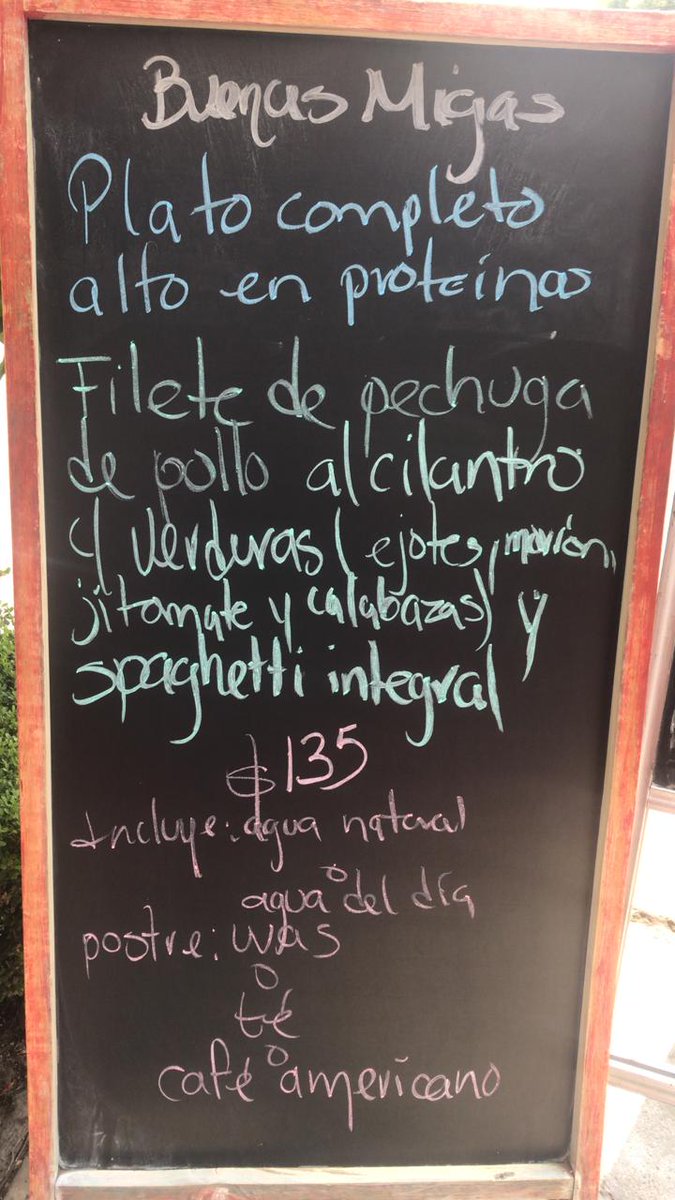 Buenas Migas
Plato completo
alto en proteinas
Filete de pechuga
de pollo al cilantro
y verduras (ejotes, morrón,
jitomate y calabazas) y
spaghetti integral
$135
Incluye: agua natural
o
agua del día
postre: uvas
o
té
o
café americano